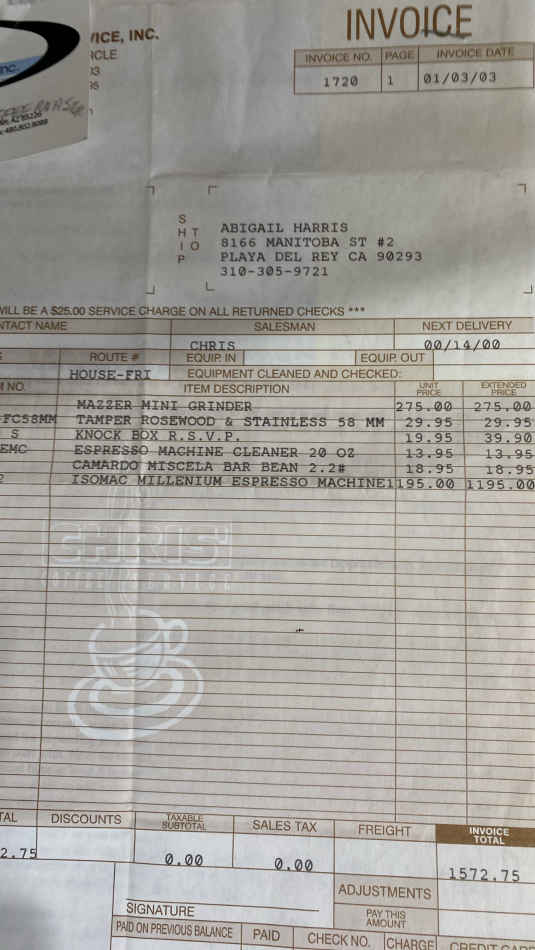 VICE, INC.
INVOICE
INVOICE NO. PAGE INVOICE DATE
1720 1 01/03/03
NC.
S H I P T O
ABIGAIL HARRIS
8166 MANITOBA ST #2
PLAYA DEL REY CA 90293
310-305-9721
WILL BE A $25.00 SERVICE CHARGE ON ALL RETURNED CHECKS ***
NTACT NAME SALESMAN NEXT DELIVERY
CHRIS 00/14/00
ROUTE # EQUIP. IN EQUIP. OUT
HOUSE-FRI EQUIPMENT CLEANED AND CHECKED:
M NO. ITEM DESCRIPTION UNIT PRICE EXTENDED PRICE
MAZZER MINI GRINDER 275.00 275.00
FC58MM TAMPER ROSEWOOD & STAINLESS 58 MM 29.95 29.95
S KNOCK BOX R.S.V.P. 19.95 39.90
EMC ESPRESSO MACHINE CLEANER 20 OZ 13.95 13.95
CAMARDO MISCELA BAR BEAN 2.2# 18.95 18.95
ISOMAC MILLENIUM ESPRESSO MACHINE 1195.00 1195.00
CHRIS'
TAL DISCOUNTS TAXABLE SUBTOTAL SALES TAX FREIGHT INVOICE TOTAL
2.75 0.00 0.00 1572.75
ADJUSTMENTS
SIGNATURE PAY THIS AMOUNT
PAID ON PREVIOUS BALANCE PAID CHECK NO. CHARGE CREDIT CARD